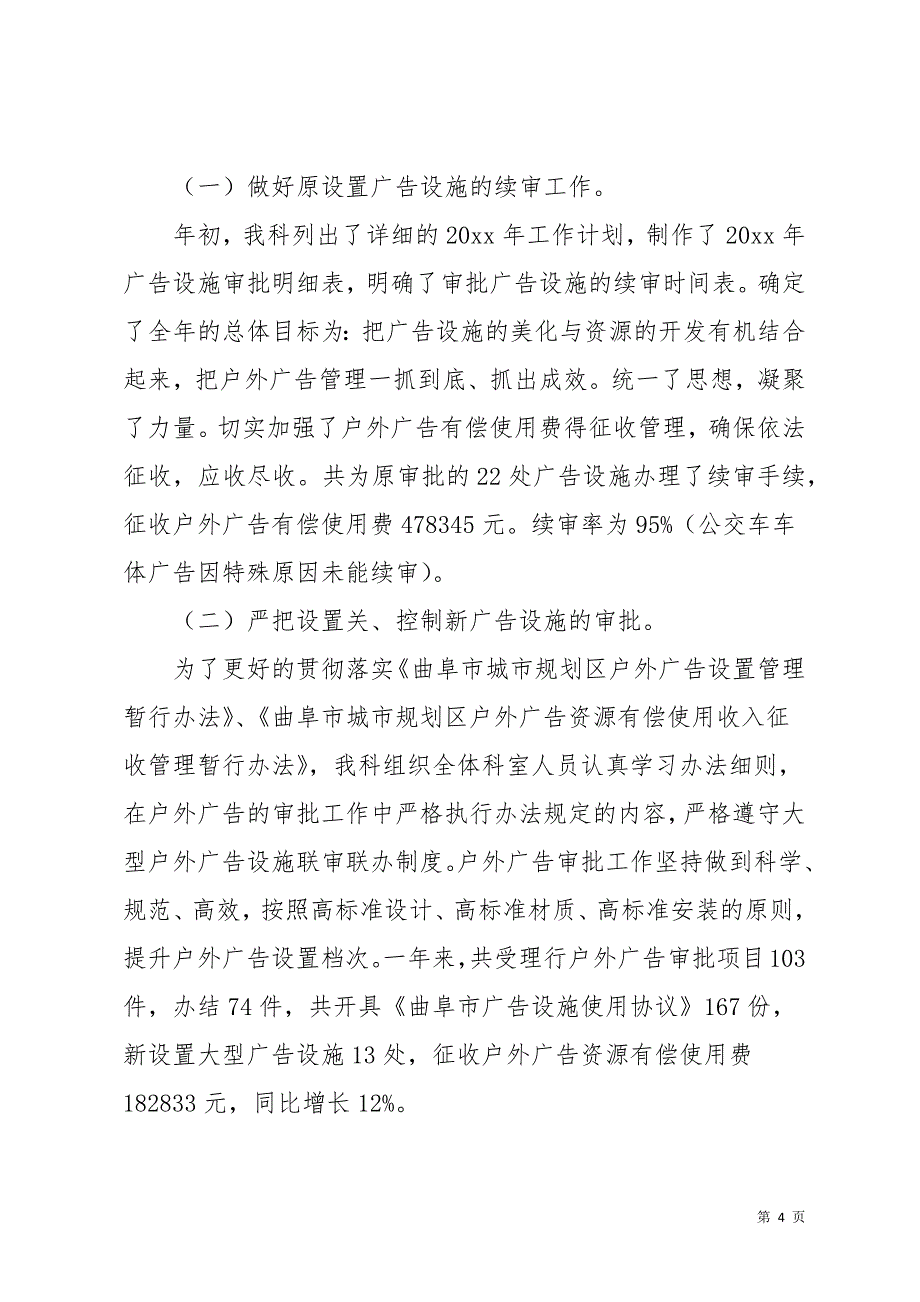 （一）做好原设置广告设施的续审工作。
年初，我科列出了详细的 20xx 年工作计划，制作了 20xx 年
广告设施审批明细表，明确了审批广告设施的续审时间表。确定
了全年的总体目标为：把广告设施的美化与资源的开发有机结合
起来，把户外广告管理一抓到底、抓出成效。统一了思想，凝聚
了力量。切实加强了户外广告有偿使用费得征收管理，确保依法
征收，应收尽收。共为原审批的 22 处广告设施办理了续审手续，
征收户外广告有偿使用费 478345 元。续审率为 95%（公交车车
体广告因特殊原因未能续审）。
（二）严把设置关、控制新广告设施的审批。
为了更好的贯彻落实《曲阜市城市规划区户外广告设置管理
暂行办法》、《曲阜市城市规划区户外广告资源有偿使用收入征
收管理暂行办法》，我科组织全体科室人员认真学习办法细则，
在户外广告的审批工作中严格执行办法规定的内容，严格遵守大
型户外广告设施联审联办制度。户外广告审批工作坚持做到科学、
规范、高效，按照高标准设计、高标准材质、高标准安装的原则，
提升户外广告设置档次。一年来，共受理行户外广告审批项目 103
件，办结 74 件，共开具《曲阜市广告设施使用协议》167 份，
新设置大型广告设施 13 处，征收户外广告资源有偿使用费
182833 元，同比增长 12%。
第 4 页